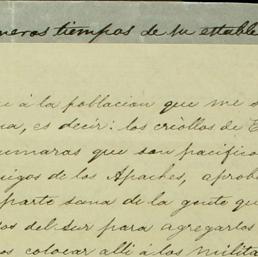 meros tiempos de su estable
á la poblacion que me
na, es decir: los criollos de E
umaras que son pacifico
migos de los Apaches, aprob
parte sana de la gente qu
os del sur para agregarlos
os colocar alli á los milita